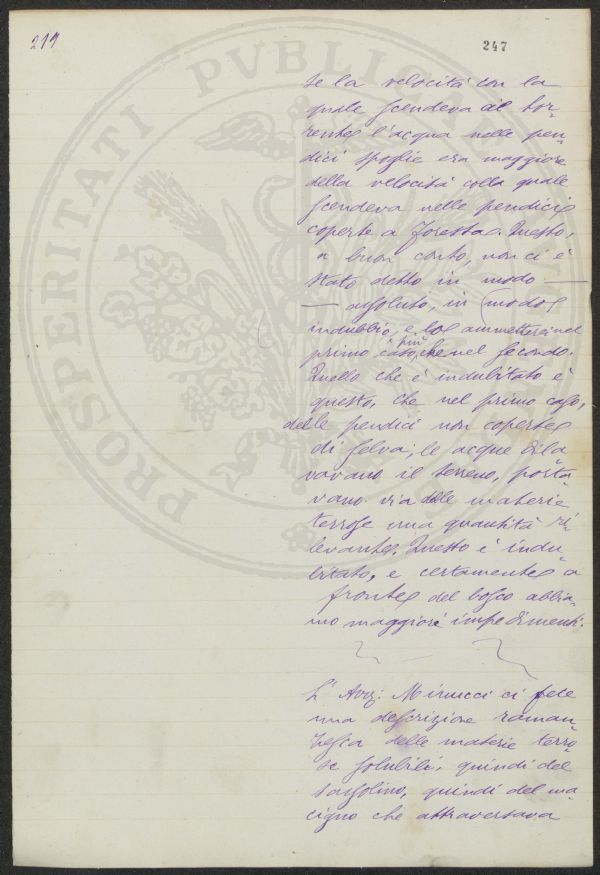 211
247
PROSPERITATI PVBLICAE
se la velocità con la
quale scendeva al tor-
rente l'acqua nelle pen-
dici spoglie era maggiore
della velocità colla quale
scendeva nelle pendici
coperte a foresta. Questo,
a buon conto, non ci è
stato detto in modo —
— assoluto, in modo
indubbio, e lo ammetterei nel
primo caso, più che nel secondo.
Quello che è indubitato è
questo, che nel primo caso,
delle pendici non coperte
di selva, le acque dila
vavano il terreno, porta
vano via delle materie
terrose una quantità ri-
levante. Questo è indu-
bitato, e certamente a
fronte del bosco abbia-
mo maggiori impedimenti.
L'Avv: Minucci ci fece
una descrizione roman-
zesca delle materie terro
se solubili, quindi del
sassolino, quindi del ma
cigno che attraversava